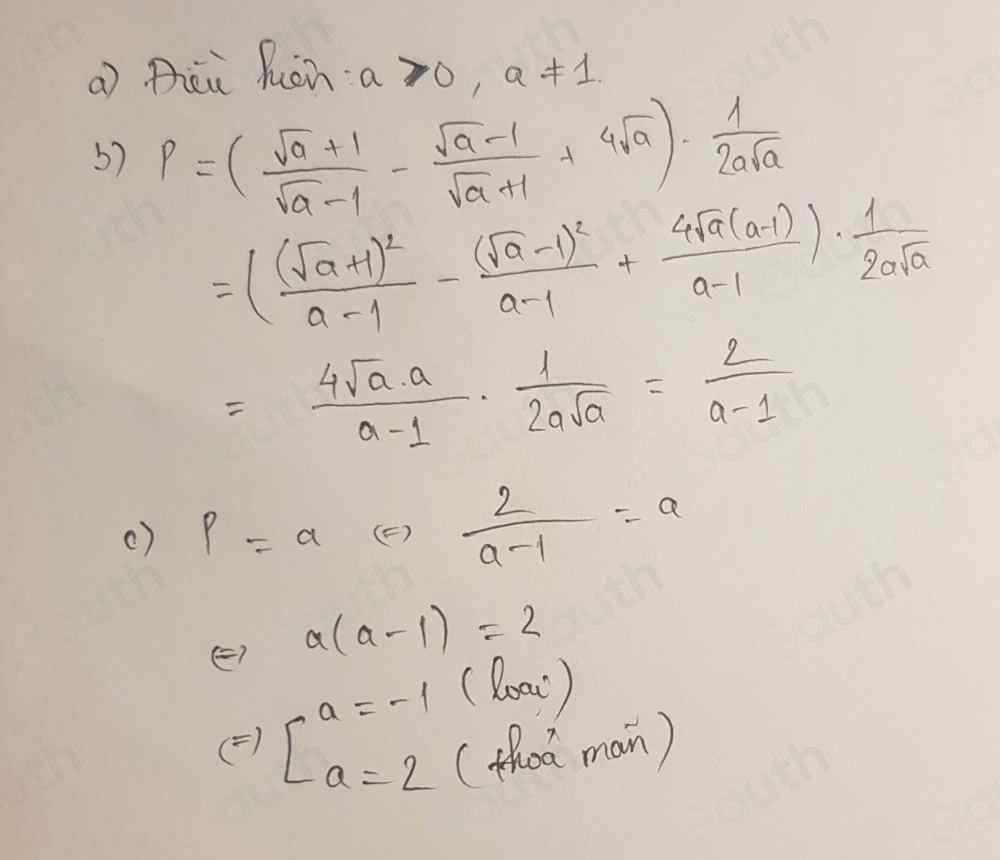 a) Điều kiện: a > 0, a ≠ 1.
b) P = ( (√a + 1)/(√a - 1) - (√a - 1)/(√a + 1) + 4√a ) · 1/(2a√a)
= ( (√a + 1)²/(a - 1) - (√a - 1)²/(a - 1) + 4√a(a - 1)/(a - 1) ) · 1/(2a√a)
= (4√a . a)/(a - 1) · 1/(2a√a) = 2/(a - 1)
c) P = a (=) 2/(a - 1) = a
(=) a(a - 1) = 2
(=) [ a = -1 (loại)
a = 2 (thoả mãn)